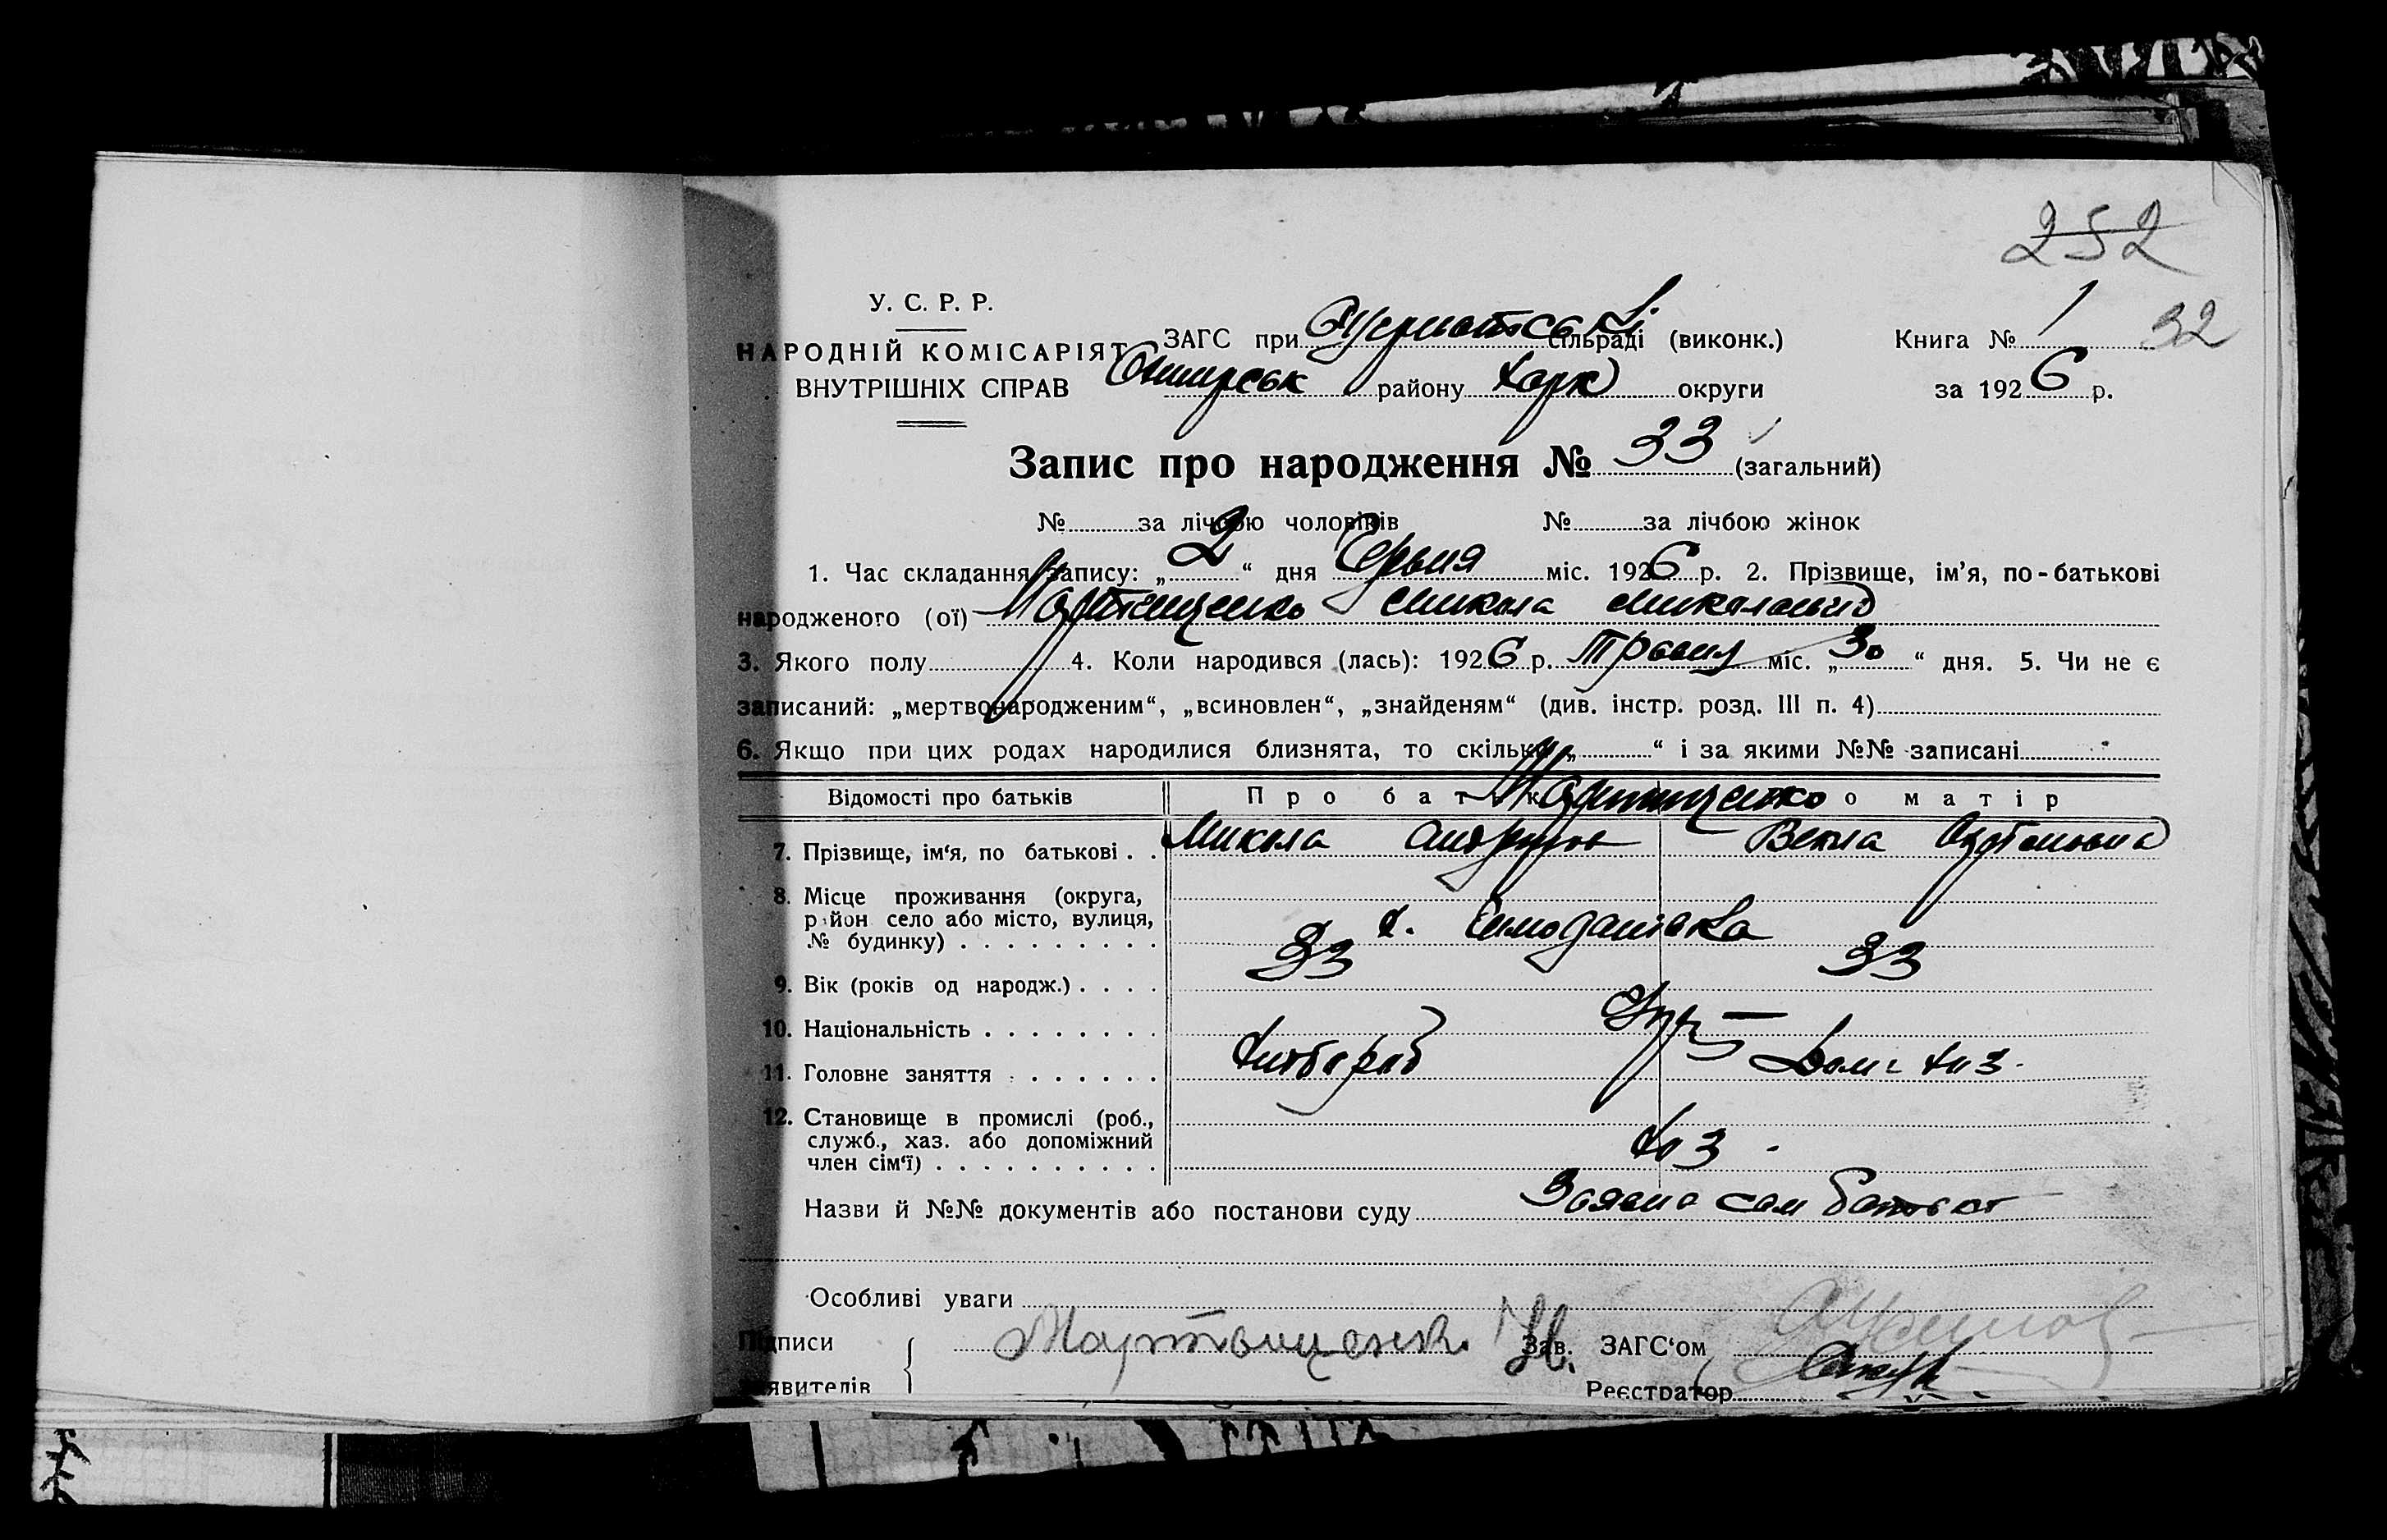 252
У. С. Р. Р.
НАРОДНІЙ КОМІСАРІЯТ
ВНУТРІШНІХ СПРАВ
ЗАГС при сільраді (виконк.)
району Харк округи
Книга № 1 32
за 1926 р.
Запис про народження № 33 (загальний)
№ за лічбою чоловіків № за лічбою жінок
1. Час складання запису: „2“ дня Червня міс. 1926 р. 2. Прізвище, ім’я, по-батькові
народженого (ої) Мартищенко Микола Миколаевич
3. Якого полу 4. Коли народився (лась): 1926 р. Травня міс. „30“ дня. 5. Чи не є
записаний: „мертвонародженим“, „всиновлен“, „знайденям“ (див. інстр. розд. III п. 4)
6. Якщо при цих родах народилися близнята, то скільки „ “ і за якими №№ записані
Відомості про батьків Про батька Про матір
Мартищенко
7. Прізвище, ім‘я, по батькові Микола Векла
8. Місце проживання (округа, район село або місто, вулиця, № будинку) х.
9. Вік (років од народж.) 33 33
10. Національність Укр
11. Головне заняття Хлібороб Дом. хоз.
12. Становище в промислі (роб., служб., хаз. або допоміжний член сім‘ї) хоз.
Назви й №№ документів або постанови суду Заявив сам батько
Особливі уваги
Підписи
заявителів
Зав. ЗАГС‘ом
Реєстратор